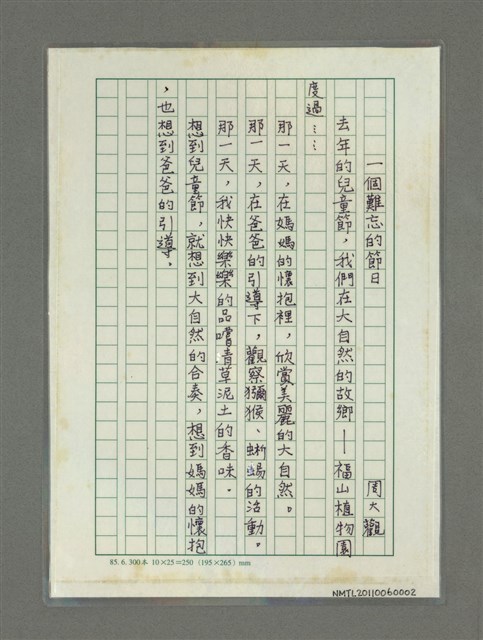 一個難忘的節日
周大觀
去年的兒童節，我們在大自然的故鄉—福山植物園
度過……
那一天，在媽媽的懷抱裡，欣賞美麗的大自然。
那一天，在爸爸的引導下，觀察獼猴、蜥蜴的活動。
那一天，我快快樂樂的品嚐青草泥土的香味。
想到兒童節，就想到大自然的合奏，想到媽媽的懷抱
，也想到爸爸的引導。
85.6.300本 10×25=250 (195×265) mm
NMTL20110060002